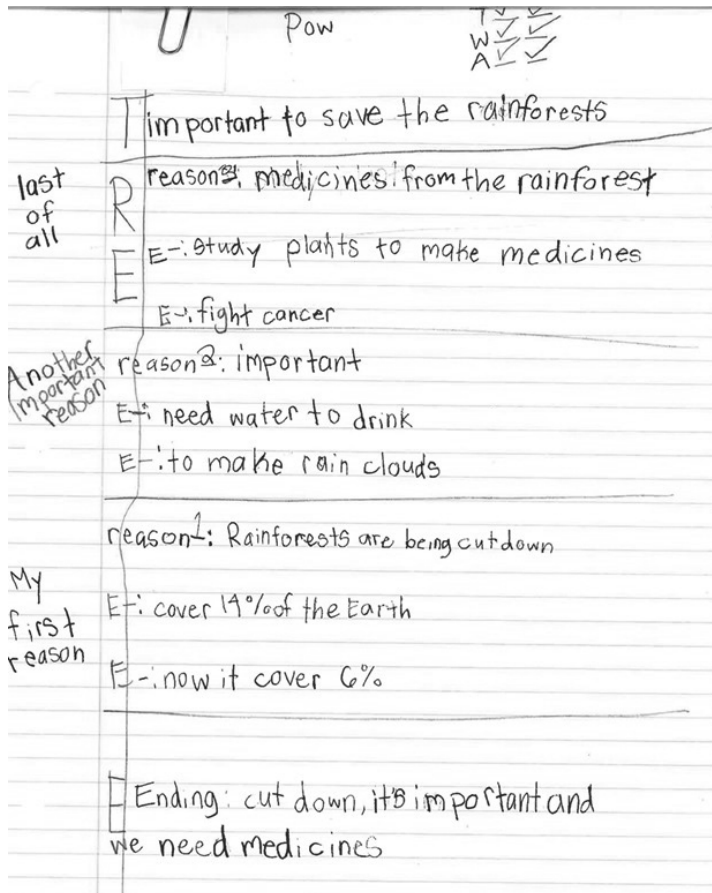 Pow
T ✓ ✓
W ✓ ✓
A ✓ ✓
T important to save the rainforests
last of all
R reason 3: medicines from the rainforest
E E-: study plants to make medicines
E-: fight cancer
Another important reason
reason 2: important
E-: need water to drink
E-: to make rain clouds
My first reason
reason 1: Rainforests are being cut down
E-: cover 14% of the Earth
E-: now it cover 6%
E Ending: cut down, it's important and
we need medicines